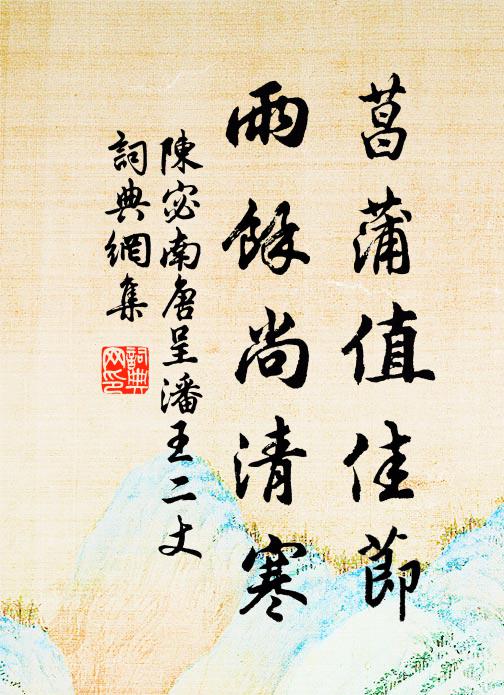 菖蒲值佳節
雨餘尚清寒
陳宓南唐呈潘王二丈
詞典網集
詞典網印